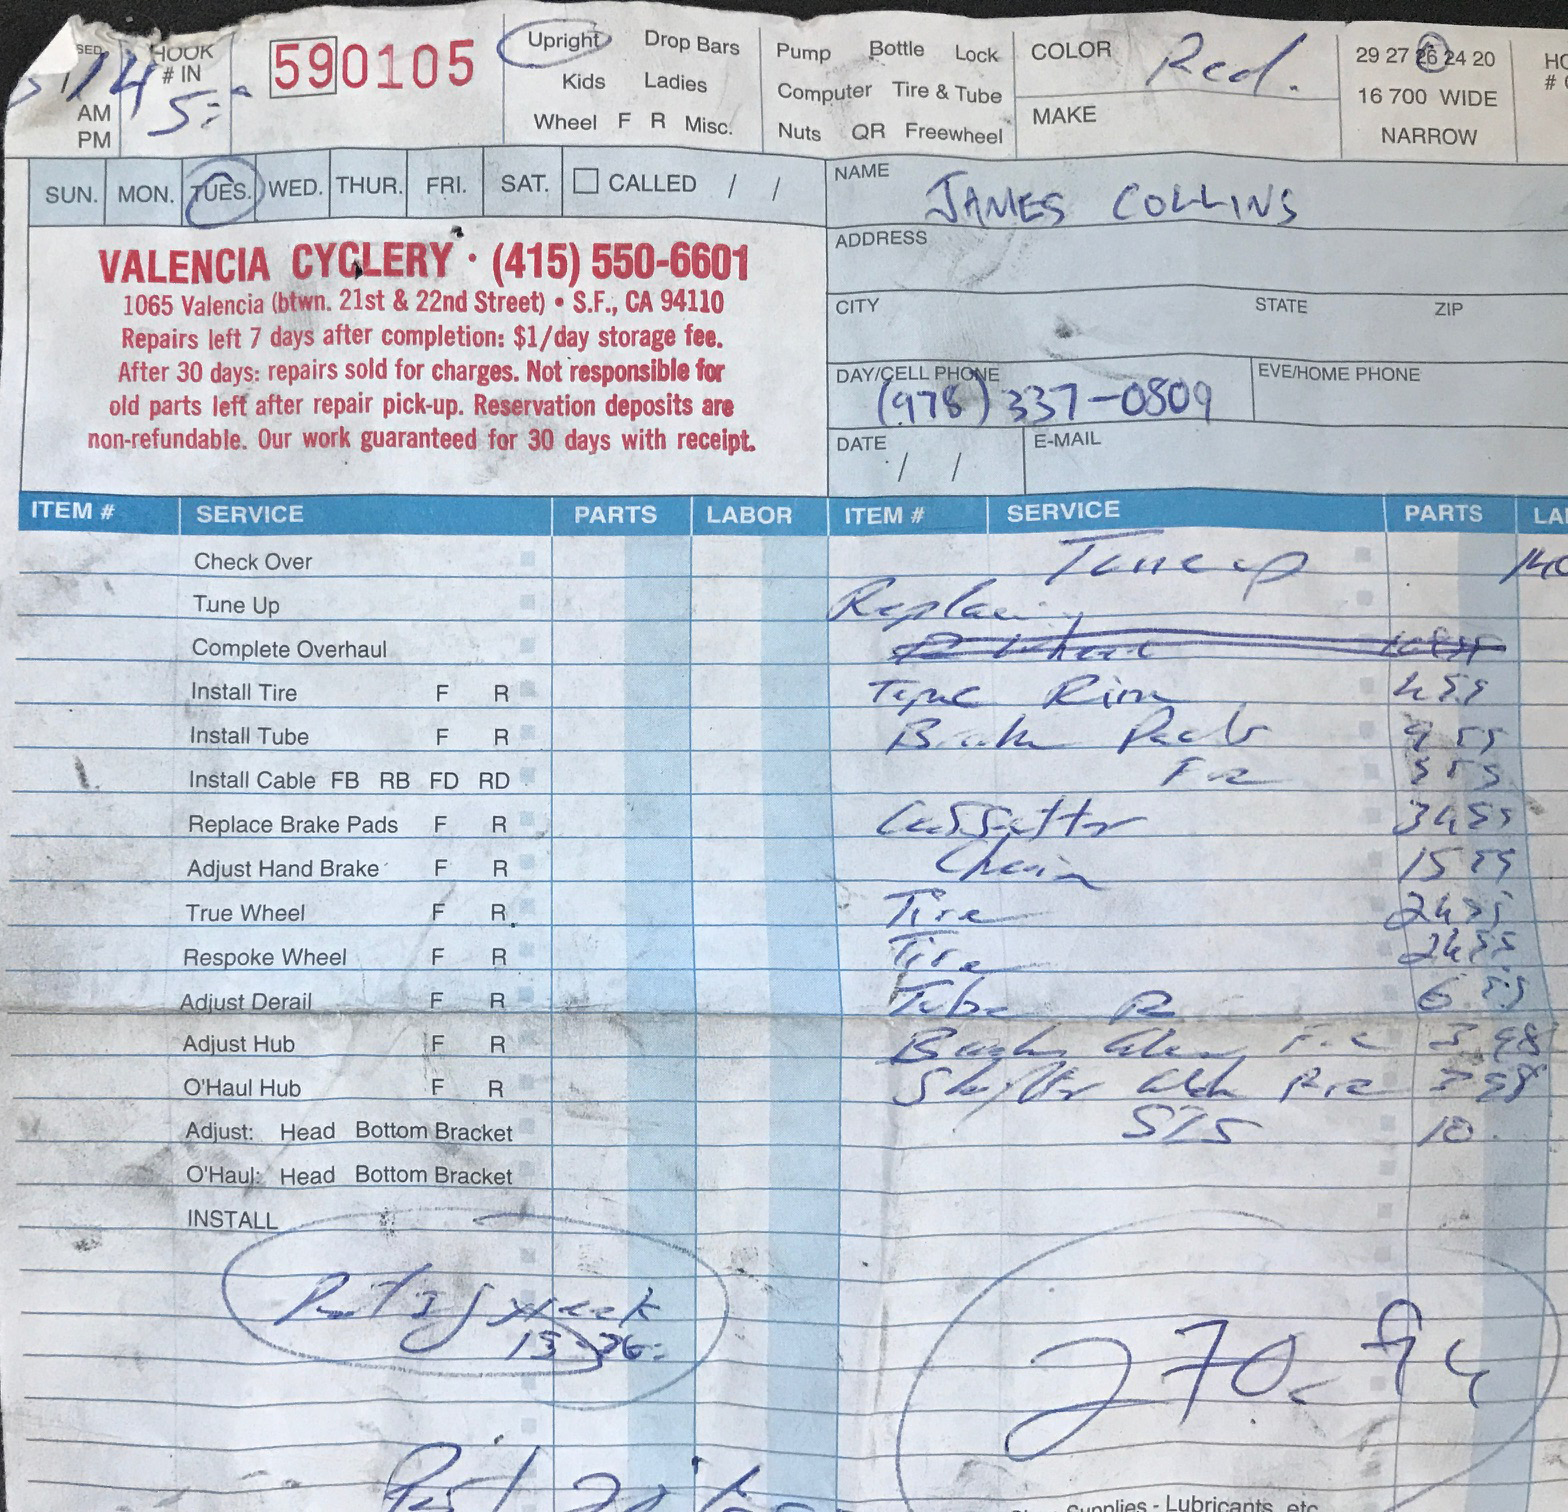 HOOK
# IN
AM
PM
590105
Upright Drop Bars
Kids Ladies
Wheel F R Misc.
Pump Bottle Lock
Computer Tire & Tube
Nuts QR Freewheel
COLOR Red.
MAKE
29 27 26 24 20
16 700 WIDE
NARROW
SUN. MON. TUES. WED. THUR. FRI. SAT. CALLED / /
NAME JAMES COLLINS
ADDRESS
CITY STATE ZIP
DAY/CELL PHONE (978) 337-0809
EVE/HOME PHONE
DATE / /
E-MAIL
VALENCIA CYCLERY · (415) 550-6601
1065 Valencia (btwn. 21st & 22nd Street) • S.F., CA 94110
Repairs left 7 days after completion: $1/day storage fee.
After 30 days: repairs sold for charges. Not responsible for
old parts left after repair pick-up. Reservation deposits are
non-refundable. Our work guaranteed for 30 days with receipt.
ITEM # SERVICE PARTS LABOR ITEM # SERVICE PARTS
Check Over
Tune Up
Complete Overhaul
Install Tire F R
Install Tube F R
Install Cable FB RB FD RD
Replace Brake Pads F R
Adjust Hand Brake F R
True Wheel F R
Respoke Wheel F R
Adjust Derail F R
Adjust Hub F R
O'Haul Hub F R
Adjust: Head Bottom Bracket
O'Haul: Head Bottom Bracket
INSTALL
Tune up
Rim
Brake Pads
Cassette
Chain
Tire
Tire
Tube R
10
270.94
Supplies - Lubricants, etc.